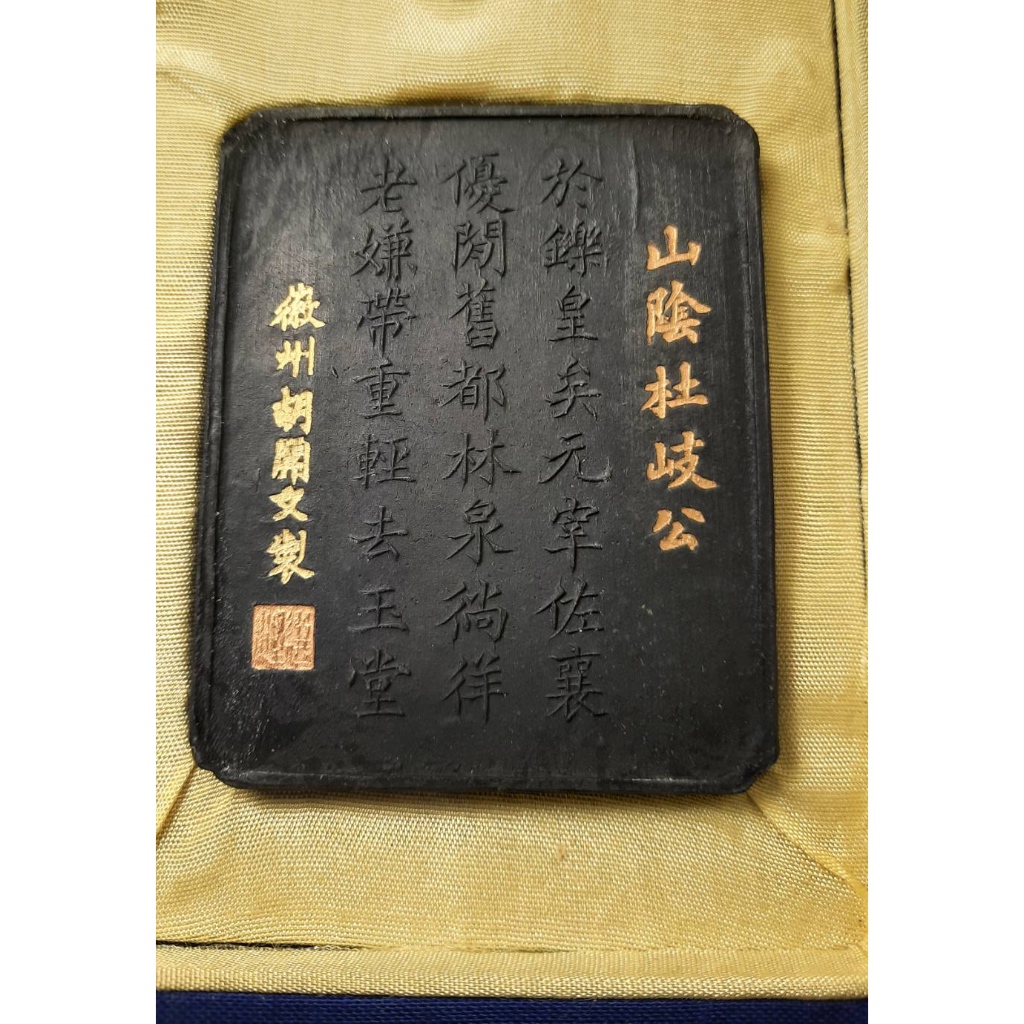 山陰杜歧公
於鑠皇矣元宰佐襄
優閒舊都林泉徜徉
老嫌帶重輕去玉堂
徽州胡開文製